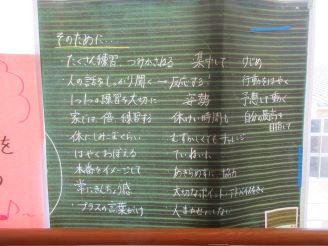 そのために…
・たくさん練習 つみかさねる 集中して けじめ
・人の話をしっかり聞く → 反応する! 行動をはやく
・1つ1つの練習を大切に 姿勢 予想して動く
家では倍練習する 休けい時間も 自分の最高を目指して
体にしみこむくらい むずかしくてもチャレンジ
はやくおぼえる ていねいに
本番をイメージして あきらめずに 協力
常にきんちょう感 大切なポイント・アドバイスをきく
・プラスの言葉がけ 人まかせにしない
を